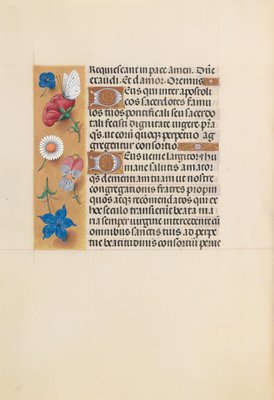 Requiescant in pace Amen. Dne
exaudi. Et clamor. Oremus
Deus qui inter apostoli
cos sacerdotes famu
los tuos pontificali seu sacerdo
tali fecisti dignitate vigere pra
qs. ut eoru quoqz perpetuo ag
gregentur consortio.
Deus venie largitor z hu
mane salutis amator
qs clementiam tuam ut nostre
congregationis fratres propin
quos atqz recomendatos qui ex
hoc seculo transierut beata ma
ria semper virgine intercedente cu
omnibus sanctis tuis ad perpe
tue beatitudinis consortiu perue